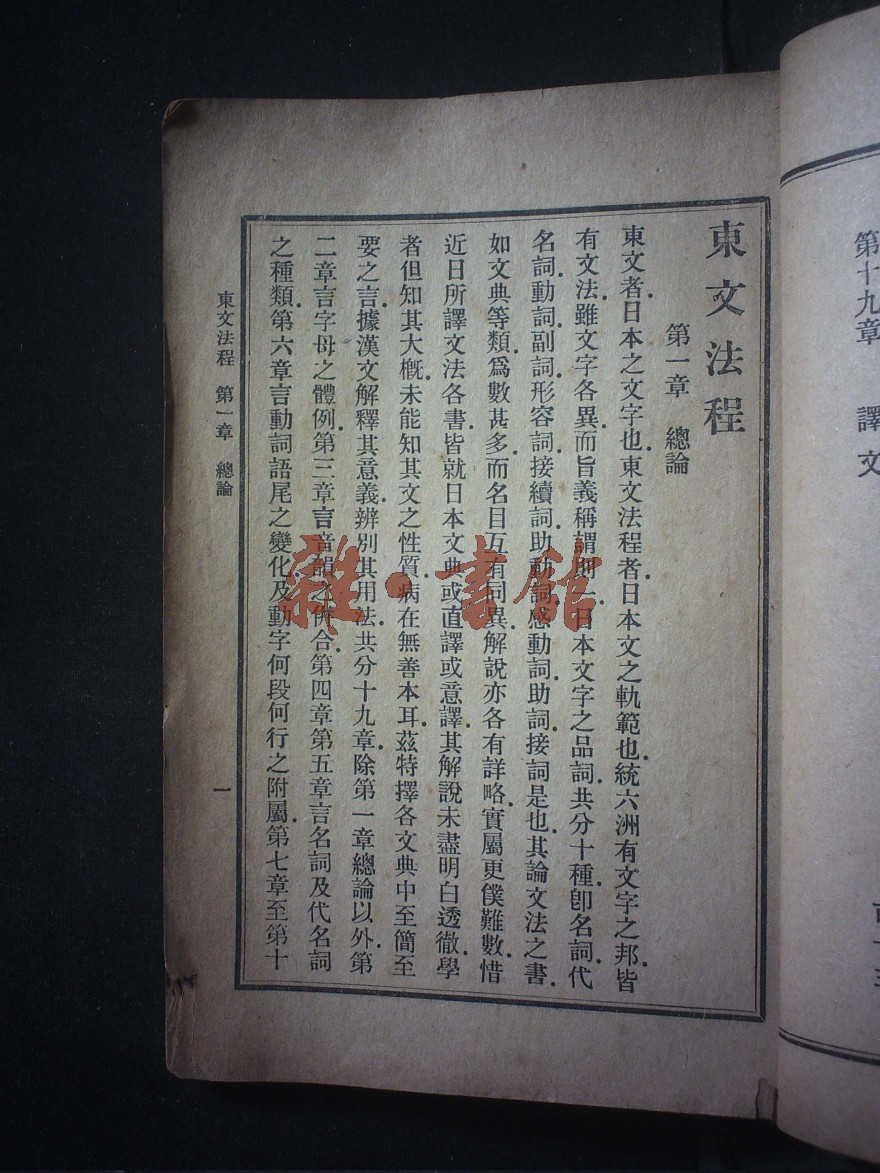 第十九章 譯文
東文法程
第一章 總論
東文者日本之文字也東文法程者日本文之軌範也統六洲有文字之邦皆
有文法雖文字各異而旨義稱謂則一日本文字之品詞共分十種卽名詞代
名詞動詞副詞形容詞接續詞助動詞感動詞助詞接詞是也其論文法之書
如文典等類爲數甚多而名目互有同異解說亦各有詳略實屬更僕難數惜
近日所譯文法各書皆就日本文典或直譯或意譯其解說未盡明白透徹學
者但知其大槪未能知其文之性質病在無善本耳茲特擇各文典中至簡至
要之言據漢文解釋其意義辨別其用法共分十九章除第一章總論以外第
二章言字母之體例第三章言音韻之併合第四章第五章言名詞及代名詞
之種類第六章言動詞語尾之變化及動字何段何行之附屬第七章至第十
東文法程 第一章 總論 一
雜·書館